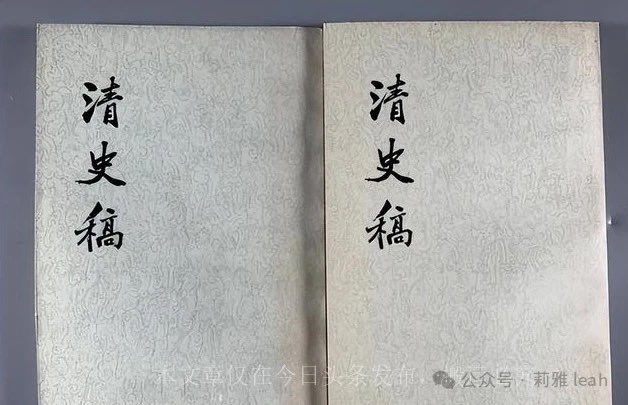 清史稿
清史稿
本文章仅在今日头条发布
公众号·莉雅 leah